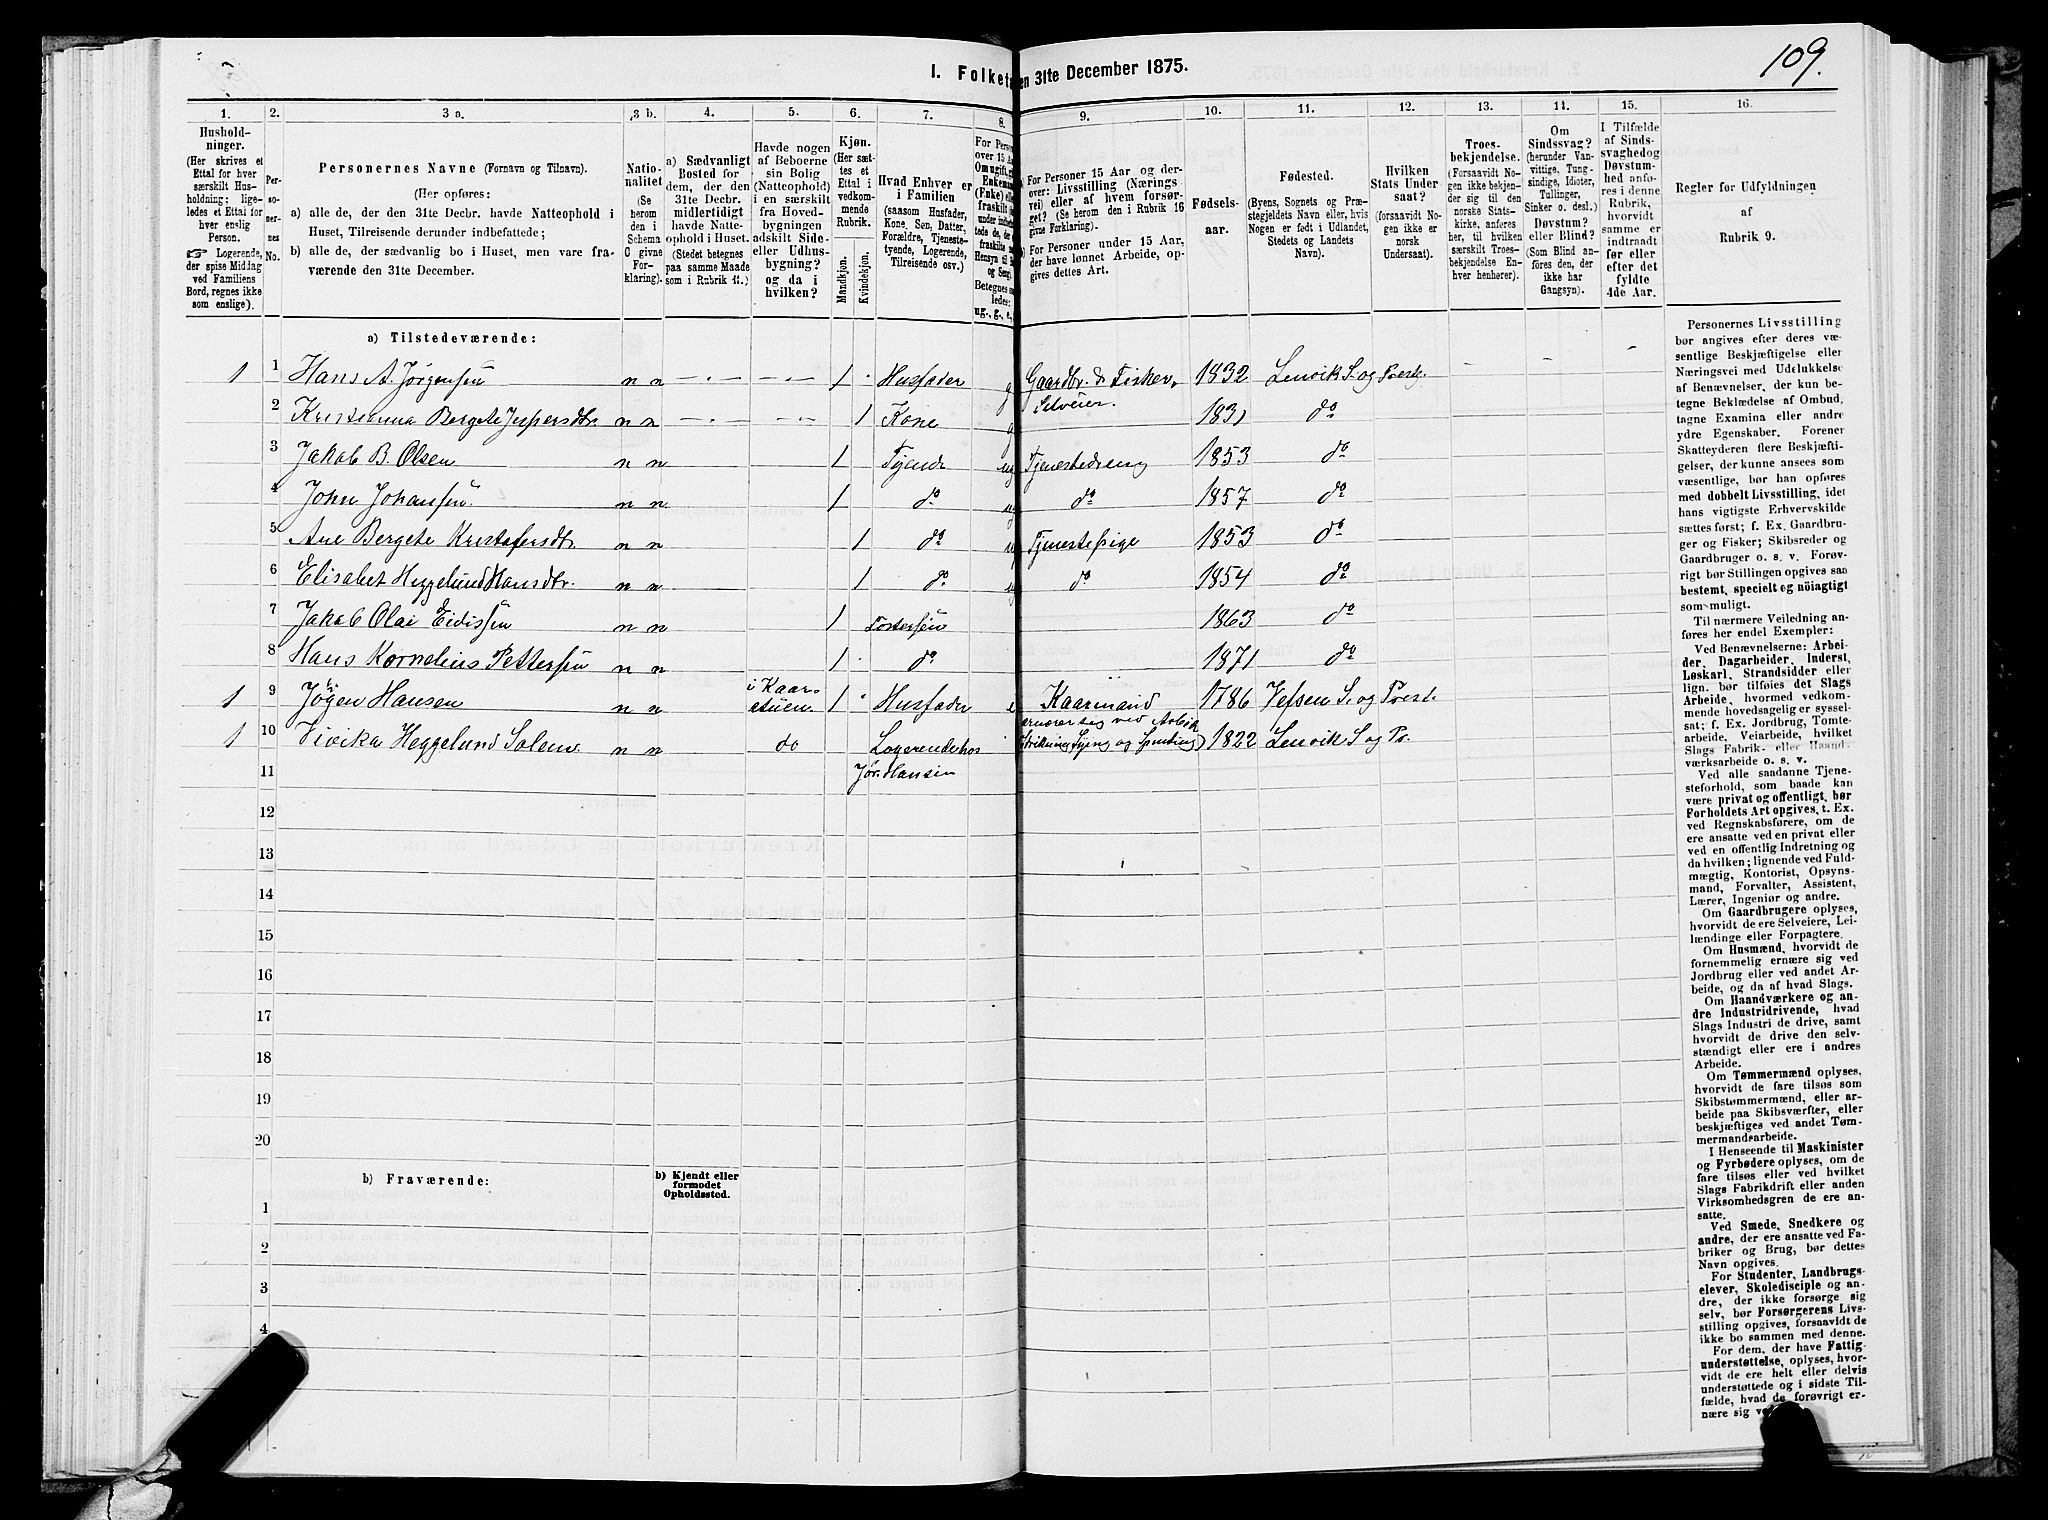 109.
I. Folket
en 31te December 1875.
1.
2.
3 a.
3 b.
4.
5.
6.
7.
8.
9.
10.
11.
12.
13.
14.
15.
16.
Hushold-
ninger.
(Her skrives et
Ettal for hver
særskilt Hus-
holdning; lige-
ledes et Ettal for
hver enslig
Person.
☞ Logerende,
der spise Middag
ved Familiens
Bord, regnes ikke
som enslige).
Per-
so-
ner-
nes
No.
Personernes Navne (Fornavn og Tilnavn).
(Her opføres:
a) alle de, der den 31te Decbr. havde Natteophold i
Huset, Tilreisende derunder indbefattede;
b) alle de, der sædvanlig bo i Huset, men vare fra-
værende den 31te December.
Natio-
nalitet
(Se
herom
den i
Schema
O givne
For-
klaring).
a) Sædvanligt
Bosted for
dem, der den
31te Decbr.
midlertidigt
havde Natte-
ophold i Huset.
(Stedet betegnes
paa samme Maade
som i Rubrik 11.)
Havde nogen
af Beboerne
sin Bolig
(Natteophold)
i en særskilt
fra Hoved-
bygningen
adskilt Side-
eller Udhus-
bygning?
og da i
hvilken?
Kjøn.
(Her sæt-
tes et
Ettal i
vedkom-
mende
Rubrik.
Mandkjøn.
Kvindekjøn.
Hvad Enhver er
i Familien
(saasom Husfader,
Kone, Søn, Datter,
Forældre, Tjeneste-
tyende, Logerende,
Tilreisende osv.)
For Perso
over 15 Aa
Om ugift, g
Enkema
(Enke) el
fraskilt
under indb
tede de, d
fraskilte
Hensyn til
og Seng.
Betegnes sa
ledes:
ug., g., e.,
For Personer 15 Aar og der-
over: Livsstilling (Nærings
vei) eller af hvem forsør-
get? (Se herom den i Rubrik 16
givne Forklaring).
For Personer under 15 Aar,
der have lønnet Arbeide, op-
gives dettes Art.
Fødsels-
aar.
Fødested.
(Byens, Sognets og Præ-
stegjeldets Navn eller, hvis
Nogen er født i Udlandet,
Stedets og Landets
Navn).
Hvilken
Stats Under
saat?
(forsaavidt No-
gen ikke er
norsk
Undersaat).
Troes-
bekjendelse.
(Forsaavidt No-
gen ikke bekjen-
der sig til den
norske Stats-
kirke, anføres
her, til hvilken
særskilt Troes-
bekjendelse En-
hver henhører).
Om
Sindssvag?
(herunder Van-
vittige, Tung-
sindige, Idioter,
Tullinger,
Sinker o. desl.)
Døvstum?
eller Blind?
(Som Blind an-
føres den, der
ikke har
Gangsyn).
I Tilfælde
af Sinds-
svaghedog
Døvstum-
hed anfø-
res i denne
Rubrik,
hvorvidt
samme er
indtraadt
før eller
efter det
fyldte
4de Aar.
Regler for Udfyldningen
af
Rubrik 9.
a) Tilstedeværende:
1 1 Hans A. Jørgensen n n 1 Husfader g Gaardbr. & Fisker, Selveier. 1832 Lenvik S. og Prestg.
2 Kristianna Bergete Jespersdtr. n n 1 Kone g 1831 do
3 Jakob B. Olsen n n 1 Tjende ug Tjenestedreng 1853 do
4 John Johansen. n n 1 do ug do 1857 do
5 Ane Bergete Kristofersdtr. n n 1 do u Tjenestepige 1853 do
6 Elisabet Heggelund Hansdtr. n n 1 do ug do 1854 do
7 Jakob Olai Eidissen n n 1 Fostersøn 1863 do
8 Hans Kornelius Pettersen n n 1 do 1871 do
1 9 Jørgen Hansen n n i Kaar-stuen. 1 Husfader e Kaarmand 1786 Vefsen S. og Prest.
1 10 Vivika Heggelund Solem n n do Logerende hos ernærer sig ved Arbeide 1822 Lenvik S og Pr.
11 Jør. Hansen
12
13
14
15
16
17
18
19
20
b) Fraværende:
b) Kjendt eller
formodet
Opholdssted.
1
2
3
4
Personernes Livsstilling
bør angives efter deres væ-
sentlige Beskjæftigelse eller
Næringsvei med Udelukkelse
af Benævnelser, der kun be-
tegne Beklædelse af Ombud,
tagne Examina eller andre
ydre Egenskaber. Forener
Skatteyderen flere Beskjæfti-
gelser, der kunne ansees som
væsentlige, bør han opføres
med dobbelt Livsstilling, idet
hans vigtigste Erhvervskilde
sættes først; f. Ex. Gaardbru-
ger og Fisker; Skibsreder og
Gaardbruger o. s. v. Forøv-
rigt bør Stillingen opgives saa
bestemt, specielt og nöiagtigt
som muligt.
Til nærmere Veiledning an-
føres her endel Exempler:
Ved Benævnelserne: Arbei-
der, Dagarbeider, Inderst,
Løskarl, Strandsidder eller
lign. bør tilføies det Slags
Arbeide, hvormed vedkom-
mende hovedsagelig er syssel-
sat; f. Ex. Jordbrug, Tomte-
arbeide, Veiarbeide, hvilket
Slags Fabrik- eller Haand-
værksarbeide o. s. v.
Ved alle saadanne Tjene-
steforhold, som baade kan
være privat og offentligt, bør
Forholdets Art opgives, t. Ex.
ved Regnskabsførere, om de
ere ansatte ved en privat eller
ved en offentlig Indretning og
da hvilken; lignende ved Fuld-
mægtig, Kontorist, Opsyns-
mand, Forvalter, Assistent,
Lærer, Ingeniør og andre.
Om Gaardbrugere oplyses,
hvorvidt de ere Selveiere, Lei-
lændinge eller Forpagtere.
Om Husmænd, hvorvidt de
fornemmelig ernære sig ved
Jordbrug eller ved andet Ar-
beide, og da af hvad Slags.
Om Haandværkere og an-
dre Industridrivende, hvad
Slags Industri de drive, samt
hvorvidt de drive den selv-
stændigt eller ere i andres
Arbeide.
Om Tømmermænd oplyses,
hvorvidt de fare tilsøs som
Skibstømmermænd, eller ar-
beide paa Skibsværfter, eller
beskjæftiges ved andet Tøm-
mermandsarbeide.
I Henseende til Maskinister
og Fyrbødere oplyses, om de
fare tilsøs eller ved hvilket
Slags Fabrikdrift eller anden
Virksomhedsgren de ere an-
satte.
Ved Smede, Snedkere og
andre, der ere ansatte ved Fa-
briker og Brug, bør dettes
Navn opgives.
For Studenter, Landbrugs-
elever, Skoledisciple og an-
dre, der ikke forsørge sig
selv, bør Forsørgerens Livs-
stilling opgives, forsaavidt de
ikke bo sammen med denne.
For dem, der have Fattig-
understøttelse, oplyses, hvor-
vidt de ere helt eller delvis
understøttede og i sidste Til-
fælde, hvad de forøvrigt er-
nære sig v